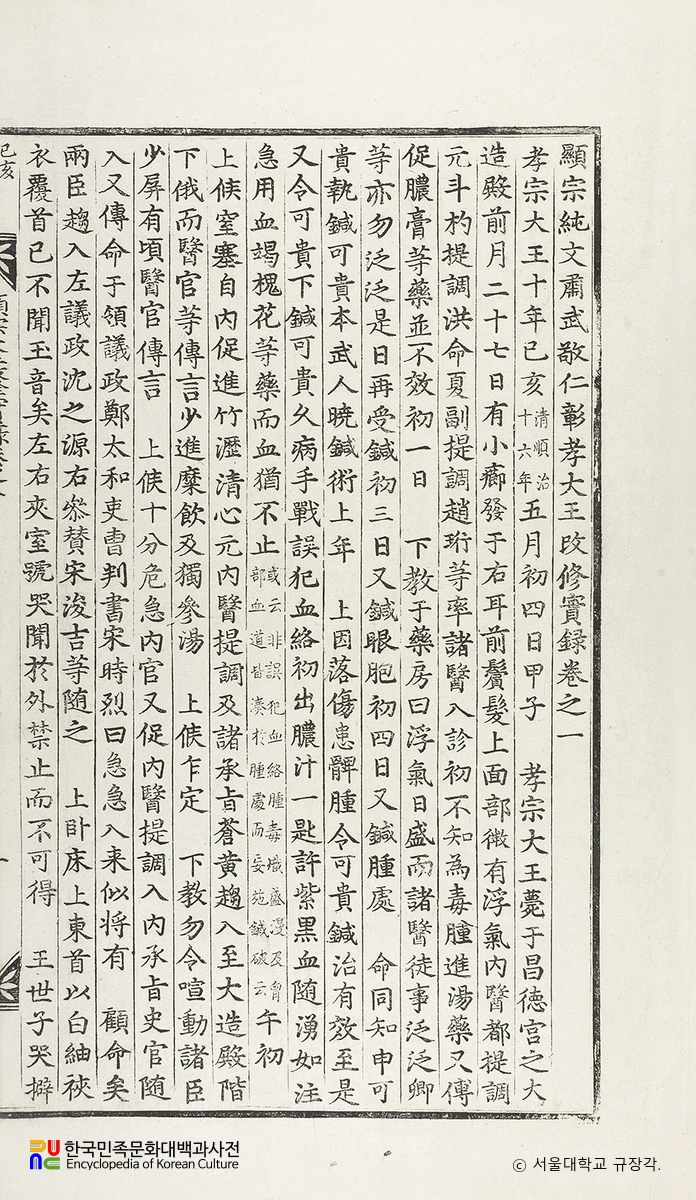 顯宗純文肅武敬仁彰孝大王改修實録卷之一
孝宗大王十年己亥清順治十六年五月初四日甲子 孝宗大王薨于昌德宮之大
造殿前月二十七日有小癤發于右耳前鬢髮上面部微有浮氣內醫都提調
元斗杓提調洪命夏副提調趙珩等率諸醫入診初不知為毒腫進湯藥又傅
促膿膏等藥並不效初一日 下教于藥房曰浮氣日盛而諸醫徒事泛泛卿
等亦勿泛泛是日再受鍼初三日又鍼眼胞初四日又鍼腫處 命同知申可
貴執鍼可貴本武人曉鍼術上年 上因落傷患髀腫令可貴鍼治有效至是
又令可貴下鍼可貴久病手戰誤犯血絡初出膿汁一匙許紫黑血随湧如注
急用血竭槐花等藥而血猶不止或云非誤犯血絡腫毒熾盛漫及胷部血道皆湊於腫處而妄施鍼破云午初
上候窒塞自內促進竹瀝清心元內醫提調及諸承旨蒼黄趨入至大造殿階
下俄而醫官等傳言少進糜飲及獨參湯 上候乍定 下教勿令喧動諸臣
少屏有頃醫官傳言 上候十分危急內官又促內醫提調入內承旨史官随
入又傳命于領議政鄭太和吏曹判書宋時烈曰急急入来似将有 顧命矣
兩臣趨入左議政沈之源右參賛宋浚吉等随之 上卧床上東首以白紬裌
衣覆首已不聞玉音矣左右夾室號哭聞於外禁止而不可得 王世子哭擗
己亥
한국민족문화대백과사전
Encyclopedia of Korean Culture
ⓒ 서울대학교 규장각.